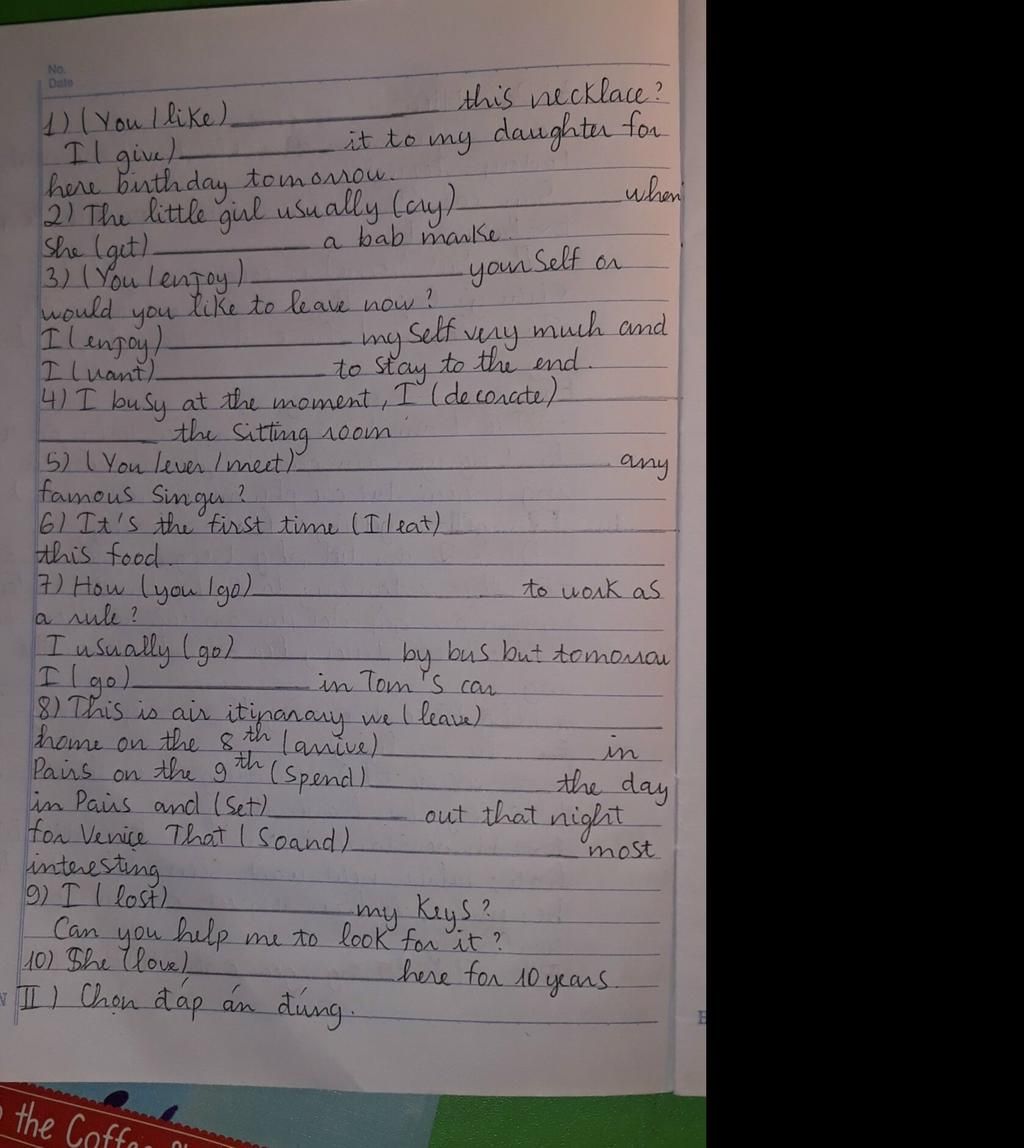 No.
Date
1) (You / like) ____________ this necklace?
I ( give) __________ it to my daughter for
here birthday tomorrow.
2) The little girl usually (cry) __________ when
she (get) __________ a bab marke.
3) (You / enjoy) ____________ yourself or
would you like to leave now?
I ( enjoy) ____________ my self very much and
I ( want) __________ to stay to the end.
4) I busy at the moment, I (decorate) ________
________ the sitting room
5) (You / ever / meet) ________________ any
famous Singer?
6) It's the first time (I / eat) ____________
this food.
7) How (you / go) ______________ to work as
a rule?
I usually ( go) __________ by bus but tomorrow
I ( go) __________ in Tom's car
8) This is air itinarary we ( leave) __________
home on the 8th (arrive) ____________ in
Pairs on the 9th (Spend) __________ the day
in Pairs and (set) ________ out that night
for Venice That ( Soand) ____________ most
interesting
9) I ( lost) __________ my Keys?
Can you help me to look for it?
10) She (love) ____________ here for 10 years.
II ) Chọn đáp án đúng.
the Coff